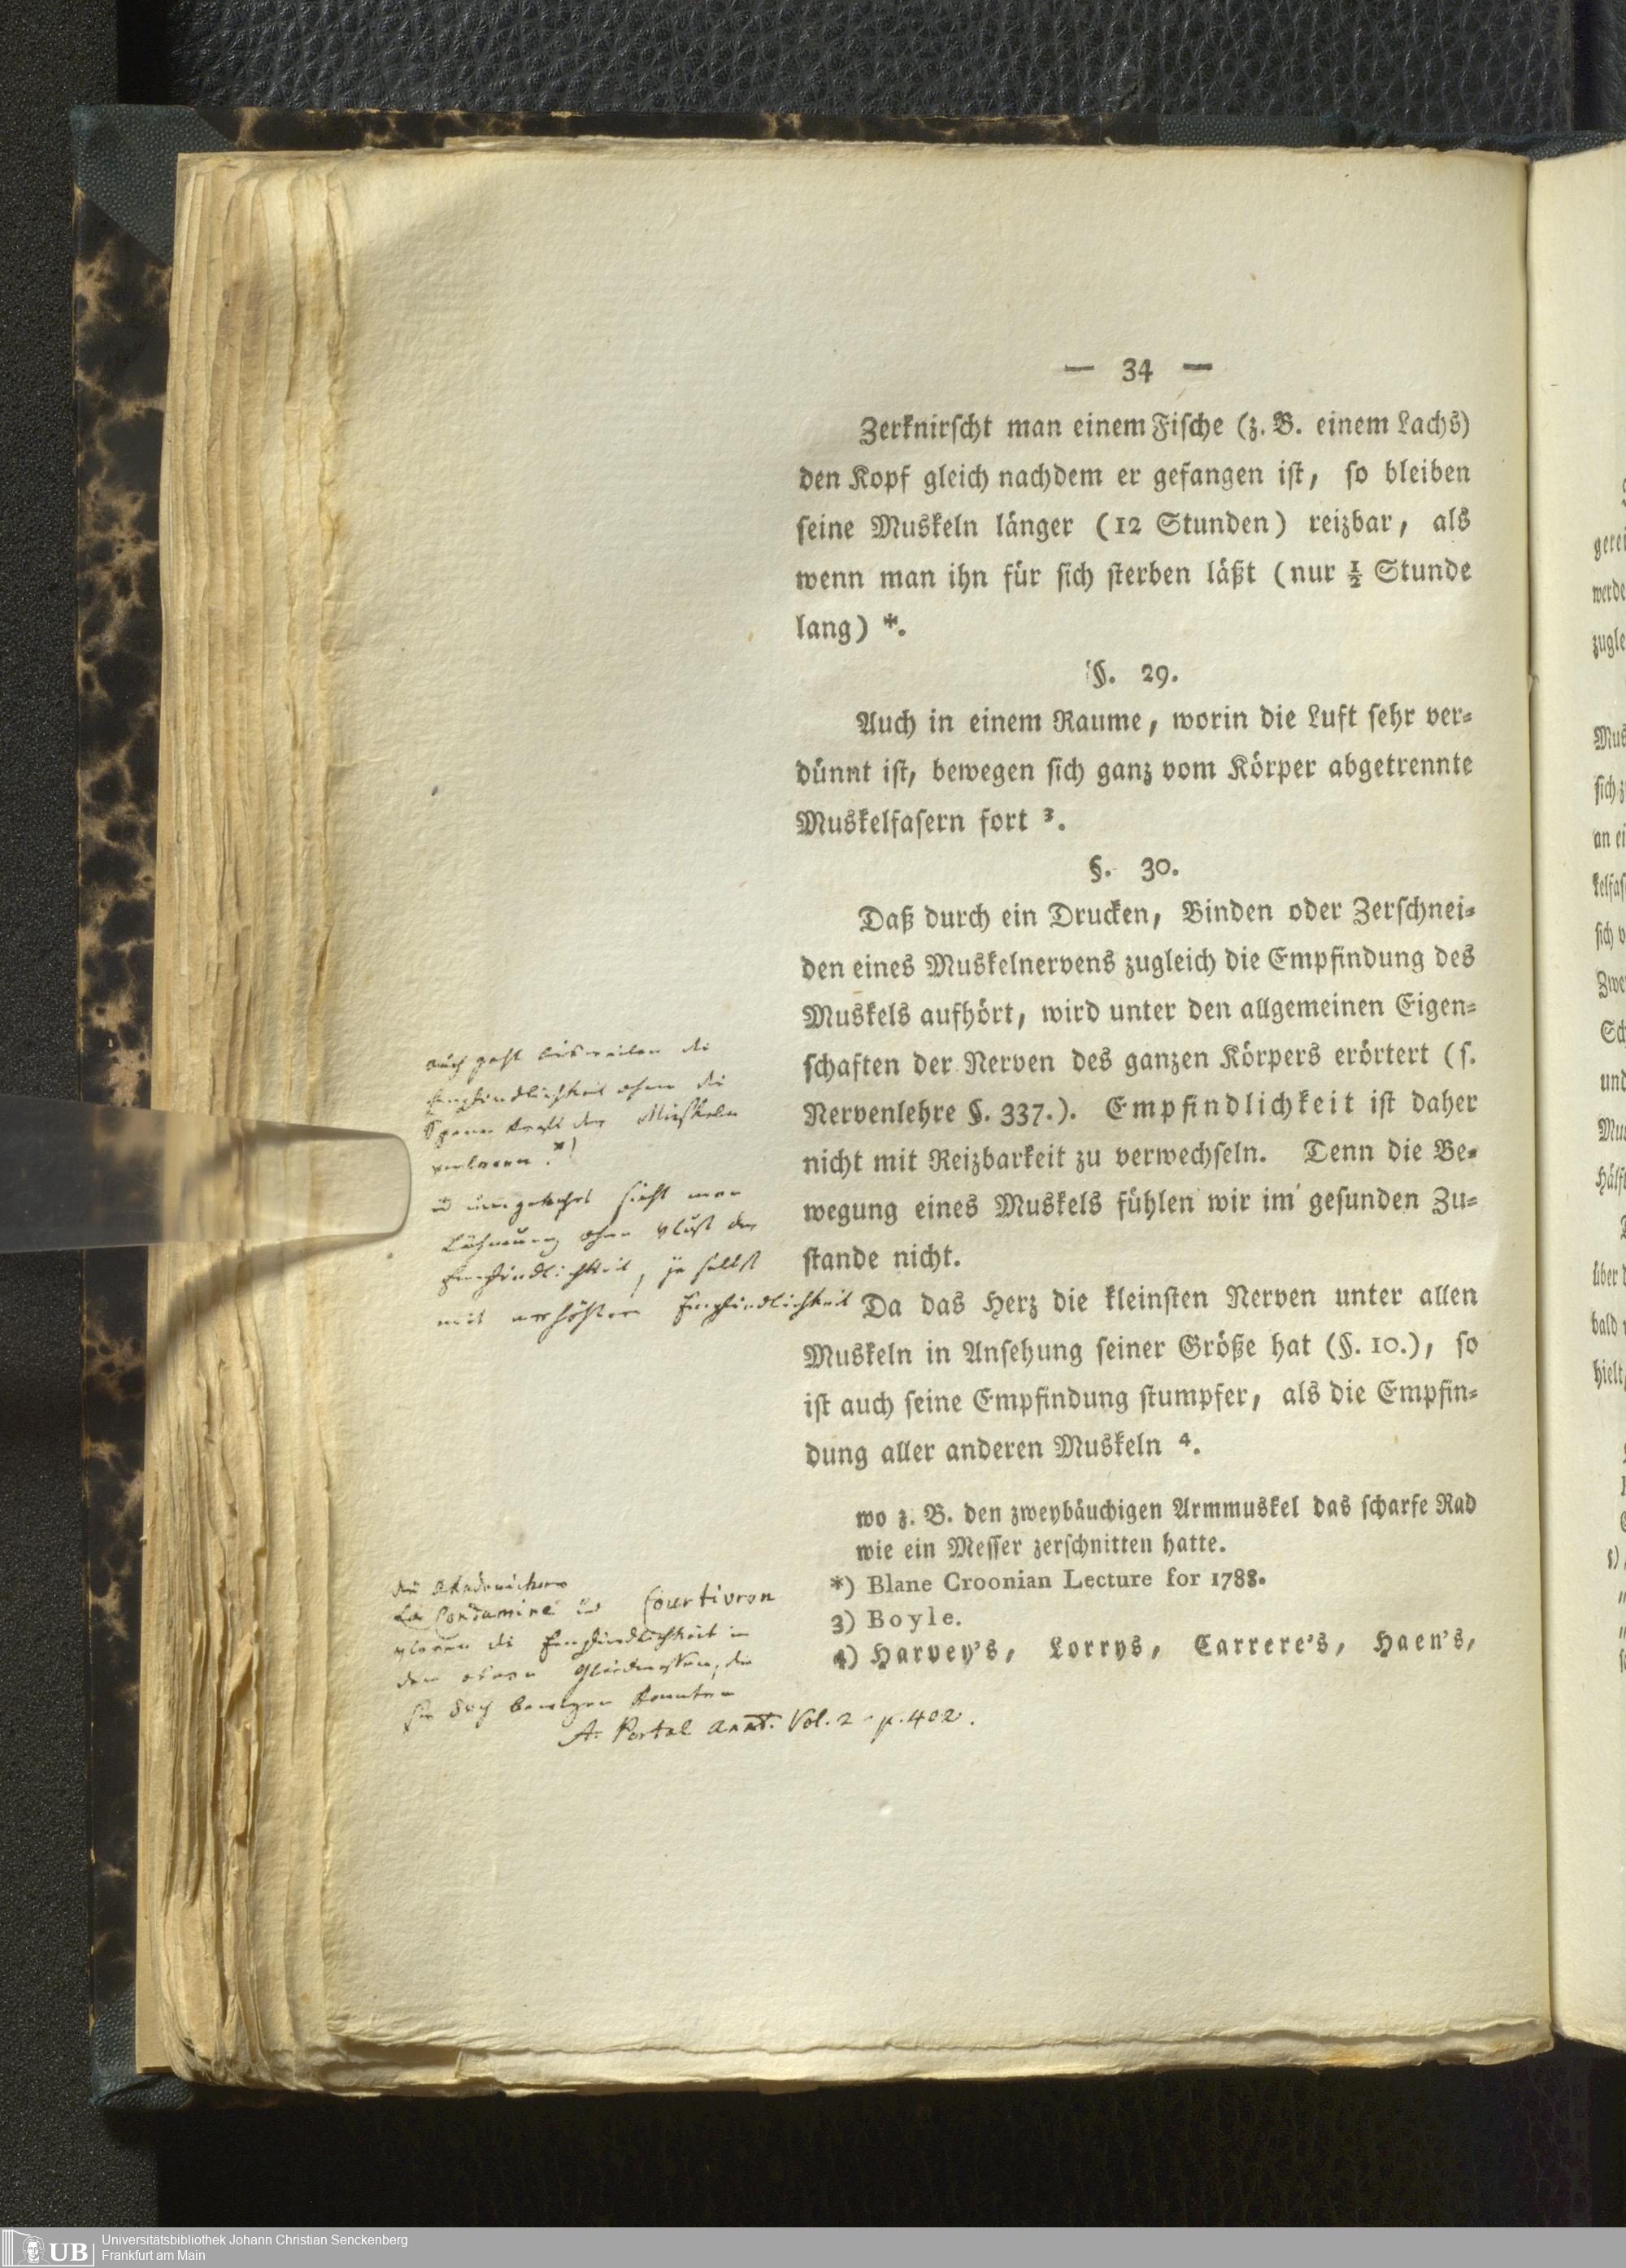 — 34 —
Zerknirſcht man einem Fiſche (z. B. einem Lachs)
den Kopf gleich nachdem er gefangen iſt, ſo bleiben
ſeine Muskeln länger (12 Stunden) reizbar, als
wenn man ihn für ſich ſterben läßt (nur ½ Stunde
lang) *.
§. 29.
Auch in einem Raume, worin die Luft ſehr ver-
dünnt iſt, bewegen ſich ganz vom Körper abgetrennte
Muskelfaſern fort ³.
§. 30.
Daß durch ein Drucken, Binden oder Zerſchnei-
den eines Muskelnervens zugleich die Empfindung des
Muskels aufhört, wird unter den allgemeinen Eigen-
ſchaften der Nerven des ganzen Körpers erörtert (ſ.
Nervenlehre §. 337.). Empfindlichkeit iſt daher
nicht mit Reizbarkeit zu verwechſeln. Denn die Be-
wegung eines Muskels fühlen wir im geſunden Zu-
ſtande nicht.
Da das Herz die kleinſten Nerven unter allen
Muskeln in Anſehung ſeiner Größe hat (§. 10.), ſo
iſt auch ſeine Empfindung ſtumpfer, als die Empfin-
dung aller anderen Muskeln ⁴.
wo z. B. den zweybäuchigen Armmuskel das ſcharfe Rad
wie ein Meſſer zerſchnitten hatte.
*) Blane Croonian Lecture for 1788.
3) Boyle.
4) Harvey's, Lorrys, Carrere's, Haen's,
auch geht bisweilen die
Empfindlichkeit ohne die
Spannkraft der Muskeln
verloren *)
u umgekehrt sieht man
Lähmung ohne Vlust der
Empfindlichkeit, ja selbst
mit erhöhter Empfindlichkeit
die Akademiker
La Condamine und Courtivron
vloren die Empfindlichkeit in
den obern Gliedmassen, die
sie doch bewegen konnten
A. Portal Anat. Vol. 2 - p. 402.
UB
Universitätsbibliothek Johann Christian Senckenberg
Frankfurt am Main